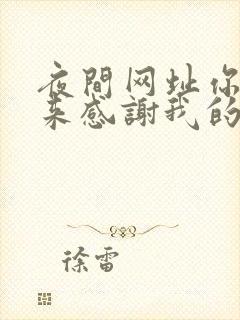 夜間网址你
来感謝我的
徐雷